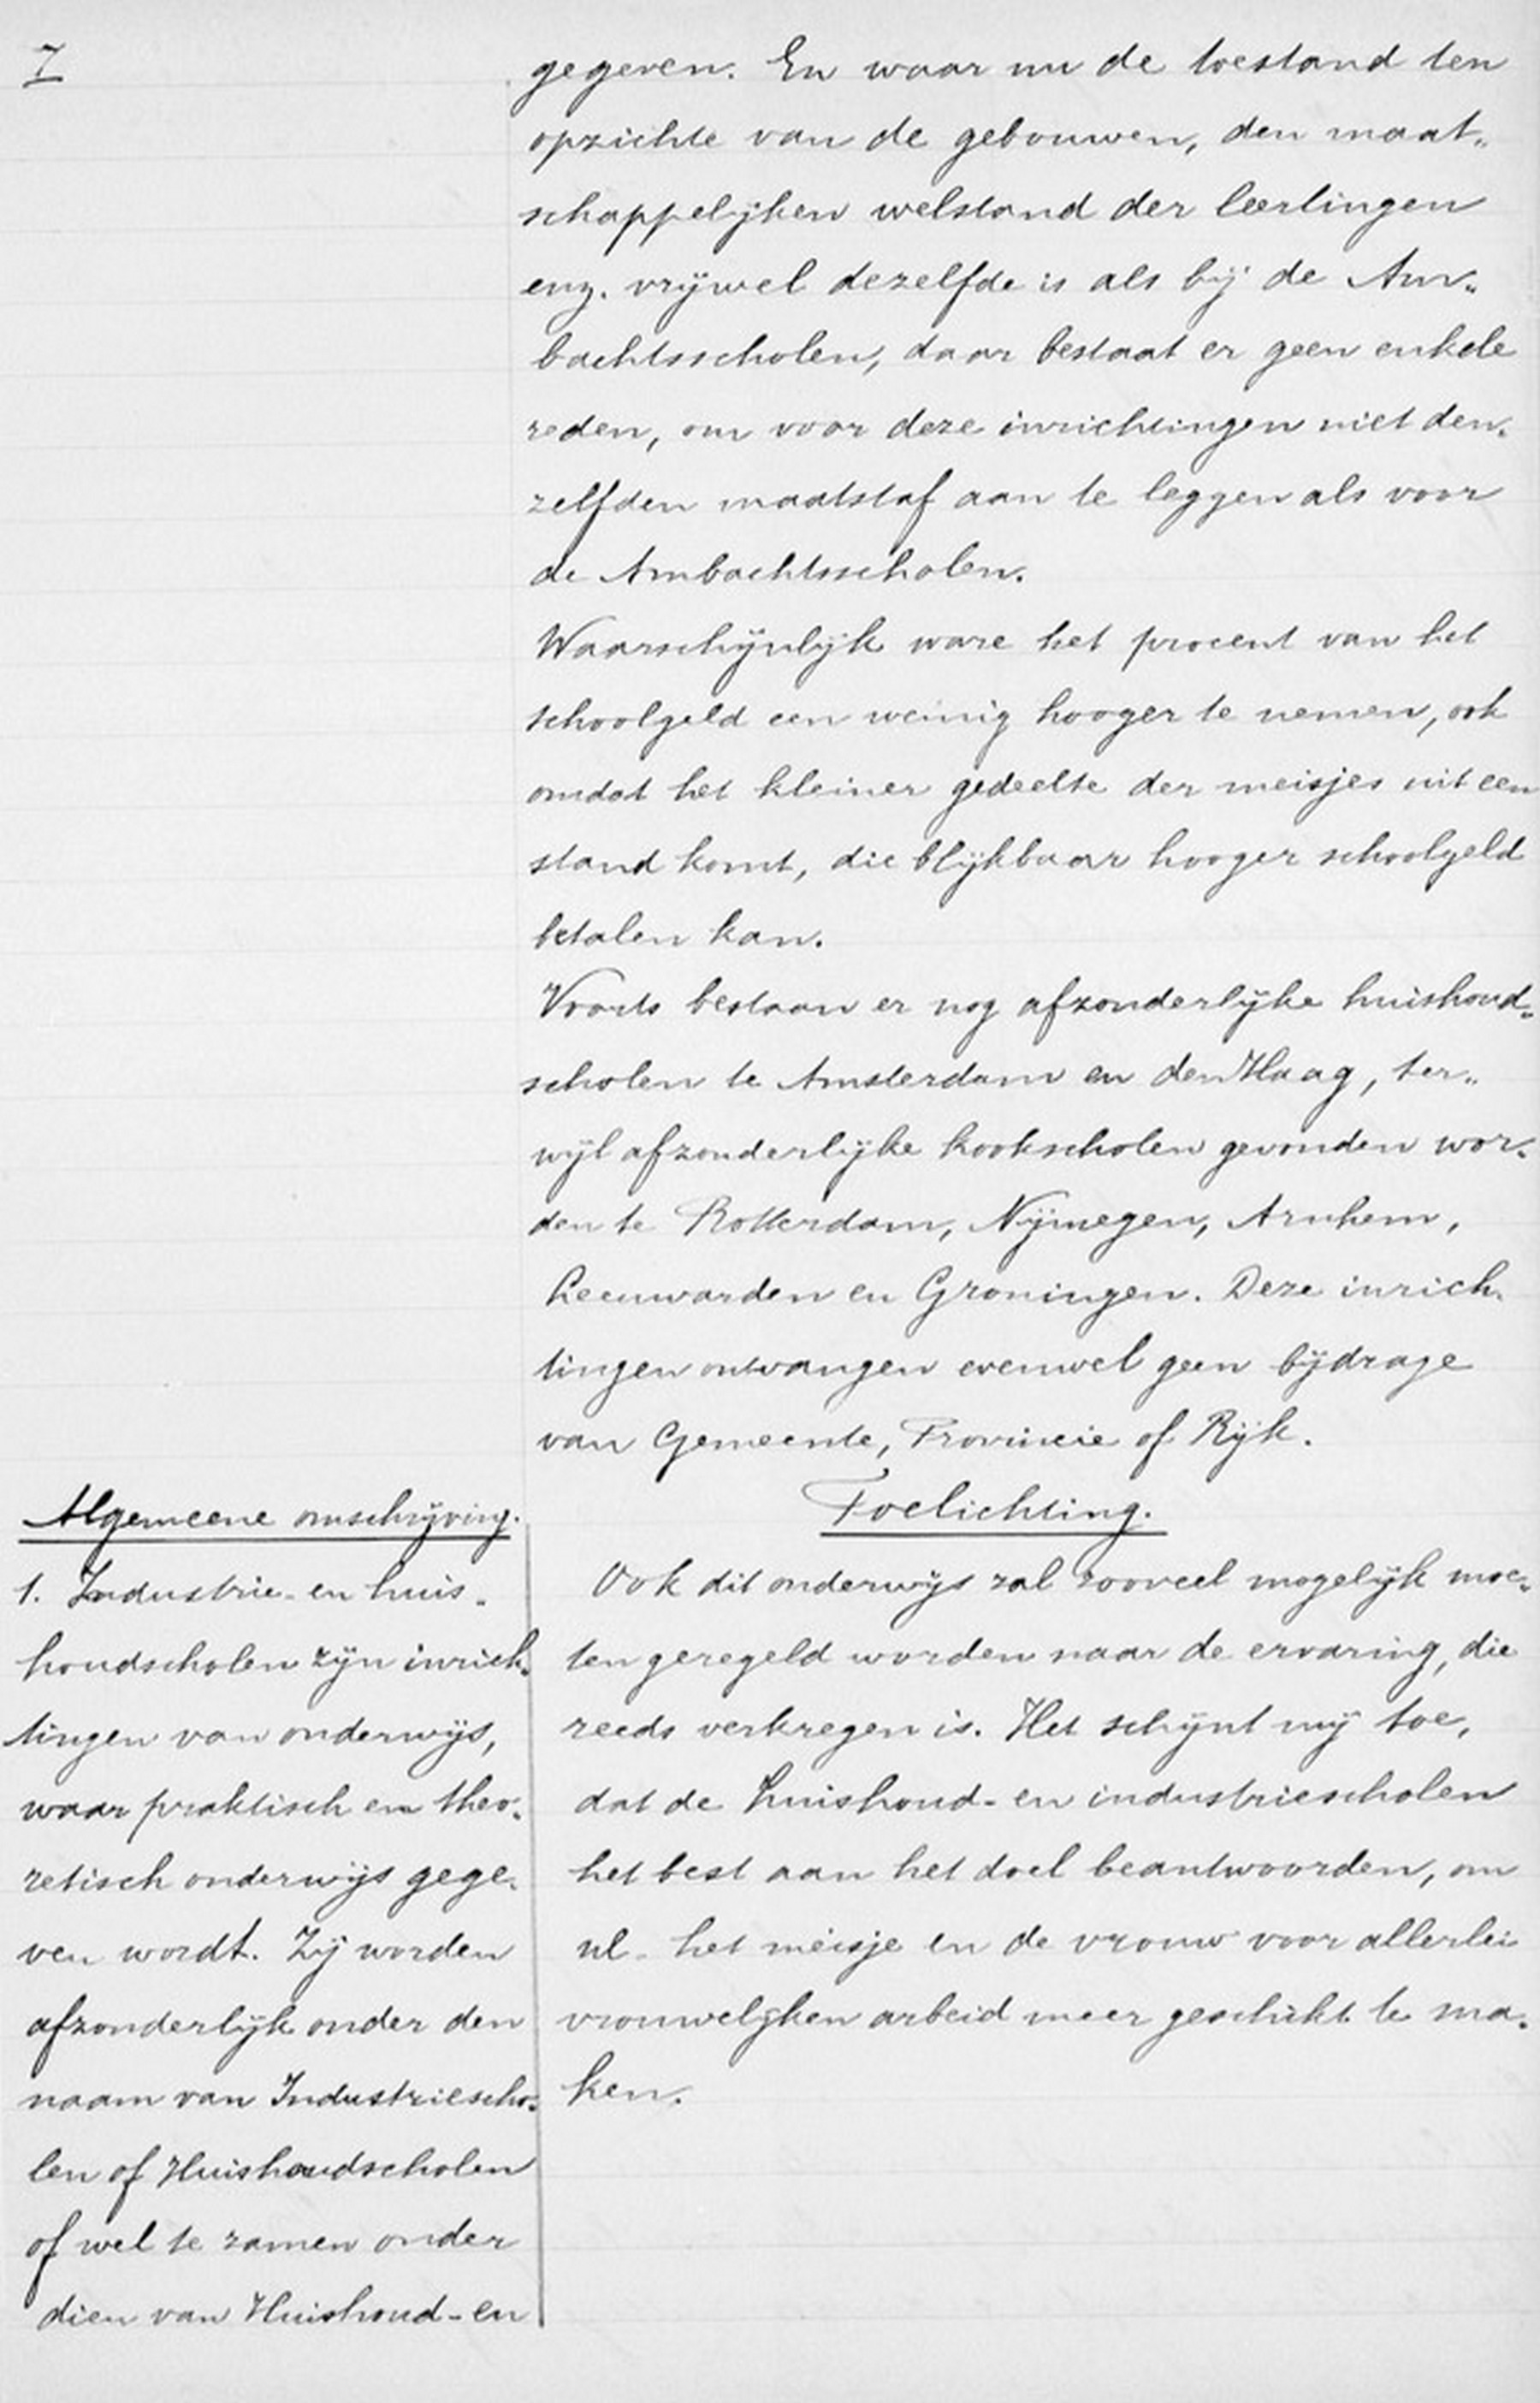 7
gegeven. En waar nu de toestand ten
opzichte van de gebouwen, den maat„
schappelijken welstand der leerlingen
enz. vrijwel dezelfde is als bij de Am„
bachtsscholen, daar bestaat er geen enkele
reden, om voor deze inrichtingen niet den„
zelfden maatstaf aan te leggen als voor
de Ambachtsscholen.
Waarschijnlijk ware het procent van het
schoolgeld een weinig hooger te nemen, ook
omdat het kleiner gedeelte der meisjes uit een
stand komt, die blijkbaar hooger schoolgeld
betalen kan.
Voorts bestaan er nog afzonderlijke huishoud„
scholen te Amsterdam en den Haag, ter„
wijl afzonderlijke kookscholen gevonden wor„
den te Rotterdam, Nijmegen, Arnhem,
Leeuwarden en Groningen. Deze inrich„
tingen ontvangen evenwel geen bijdrage
van Gemeente, Provincie of Rijk.
Algemeene omschrijving.
1. Industrie- en huis„
houdscholen zijn inrich„
tingen van onderwijs,
waar praktisch en theo„
retisch onderwijs gege„
ven wordt. Zij worden
afzonderlijk onder den
naam van Industriescho„
len of Huishoudscholen
of wel te zamen onder
dien van Huishoud- en
Toelichting.
Ook dit onderwijs zal zooveel mogelijk moe„
ten geregeld worden naar de ervaring, die
reeds verkregen is. Het schijnt mij toe,
dat de huishoud- en industriescholen
het best aan het doel beantwoorden, om
nl. het meisje en de vrouw voor allerlei
vrouwelijken arbeid meer geschikt te ma„
ken.